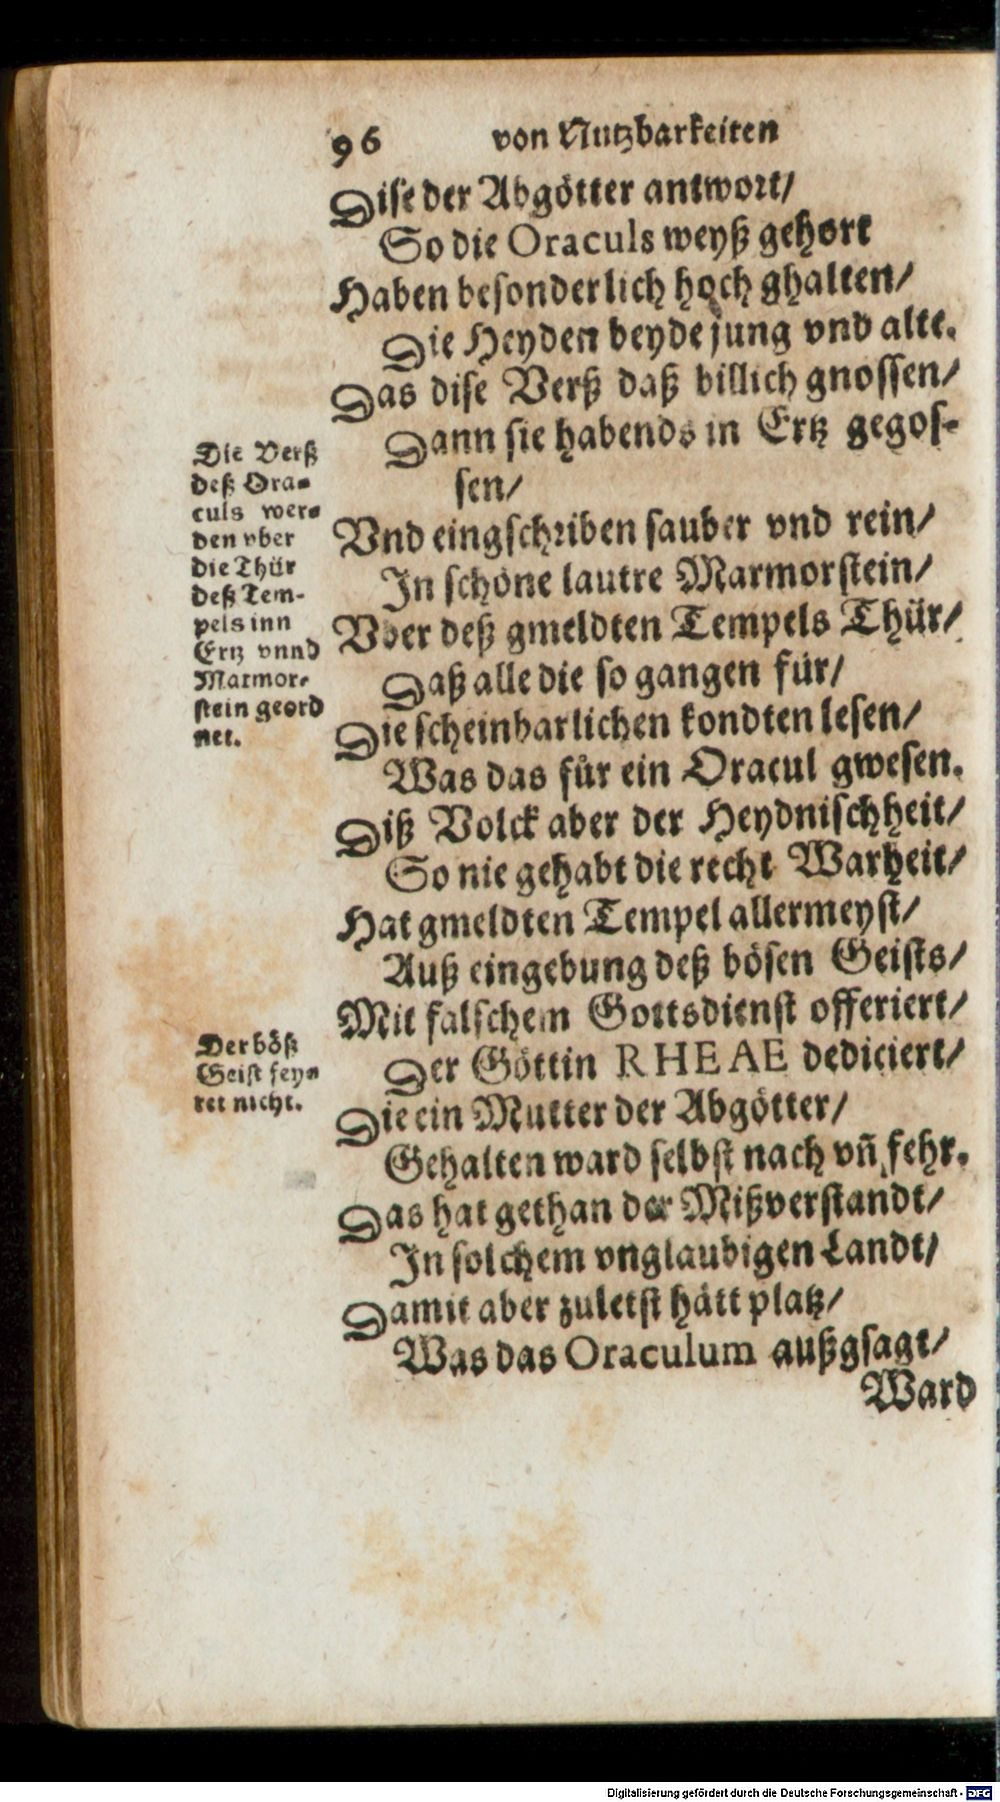 96 von Nutzbarkeiten
Dise der Abgötter antwort/
So die Oraculs weyß gehort
Haben besonderlich hoch ghalten/
Die Heyden beyde jung vnd altt.
Das dise Verß daß billich gnossen/
Dann sie habends in Ertz gegos-
sen/
Vnd eingschriben sauber vnd rein/
In schöne lautre Marmorstein/
Vber deß gmeldten Tempels Thür/
Daß alle die so gangen für/
Die scheinbarlichen kondten lesen/
Was das für ein Oracul gwesen.
Diß Volck aber der Heydnischheit/
So nie gehabt die recht Warheit/
Hat gmeldten Tempel allermeyst/
Auß eingebung deß bösen Geists/
Mit falschem Gottsdienst offeriert/
Der Göttin RHEAE dediciert/
Die ein Mutter der Abgötter/
Gehalten ward selbst nach vñ fehr.
Das hat gethan der Mißverstandt/
In solchem vnglaubigen Landt/
Damit aber zuletst hätt platz/
Was das Oraculum außgsagt/
Ward
Die Verß
deß Ora-
culs wer-
den vber
die Thür
deß Tem-
pels inn
Ertz vnnd
Marmor-
stein geord
net.
Der böß
Geist fey-
ret nicht.
Digitalisierung gefördert durch die Deutsche Forschungsgemeinschaft - DFG